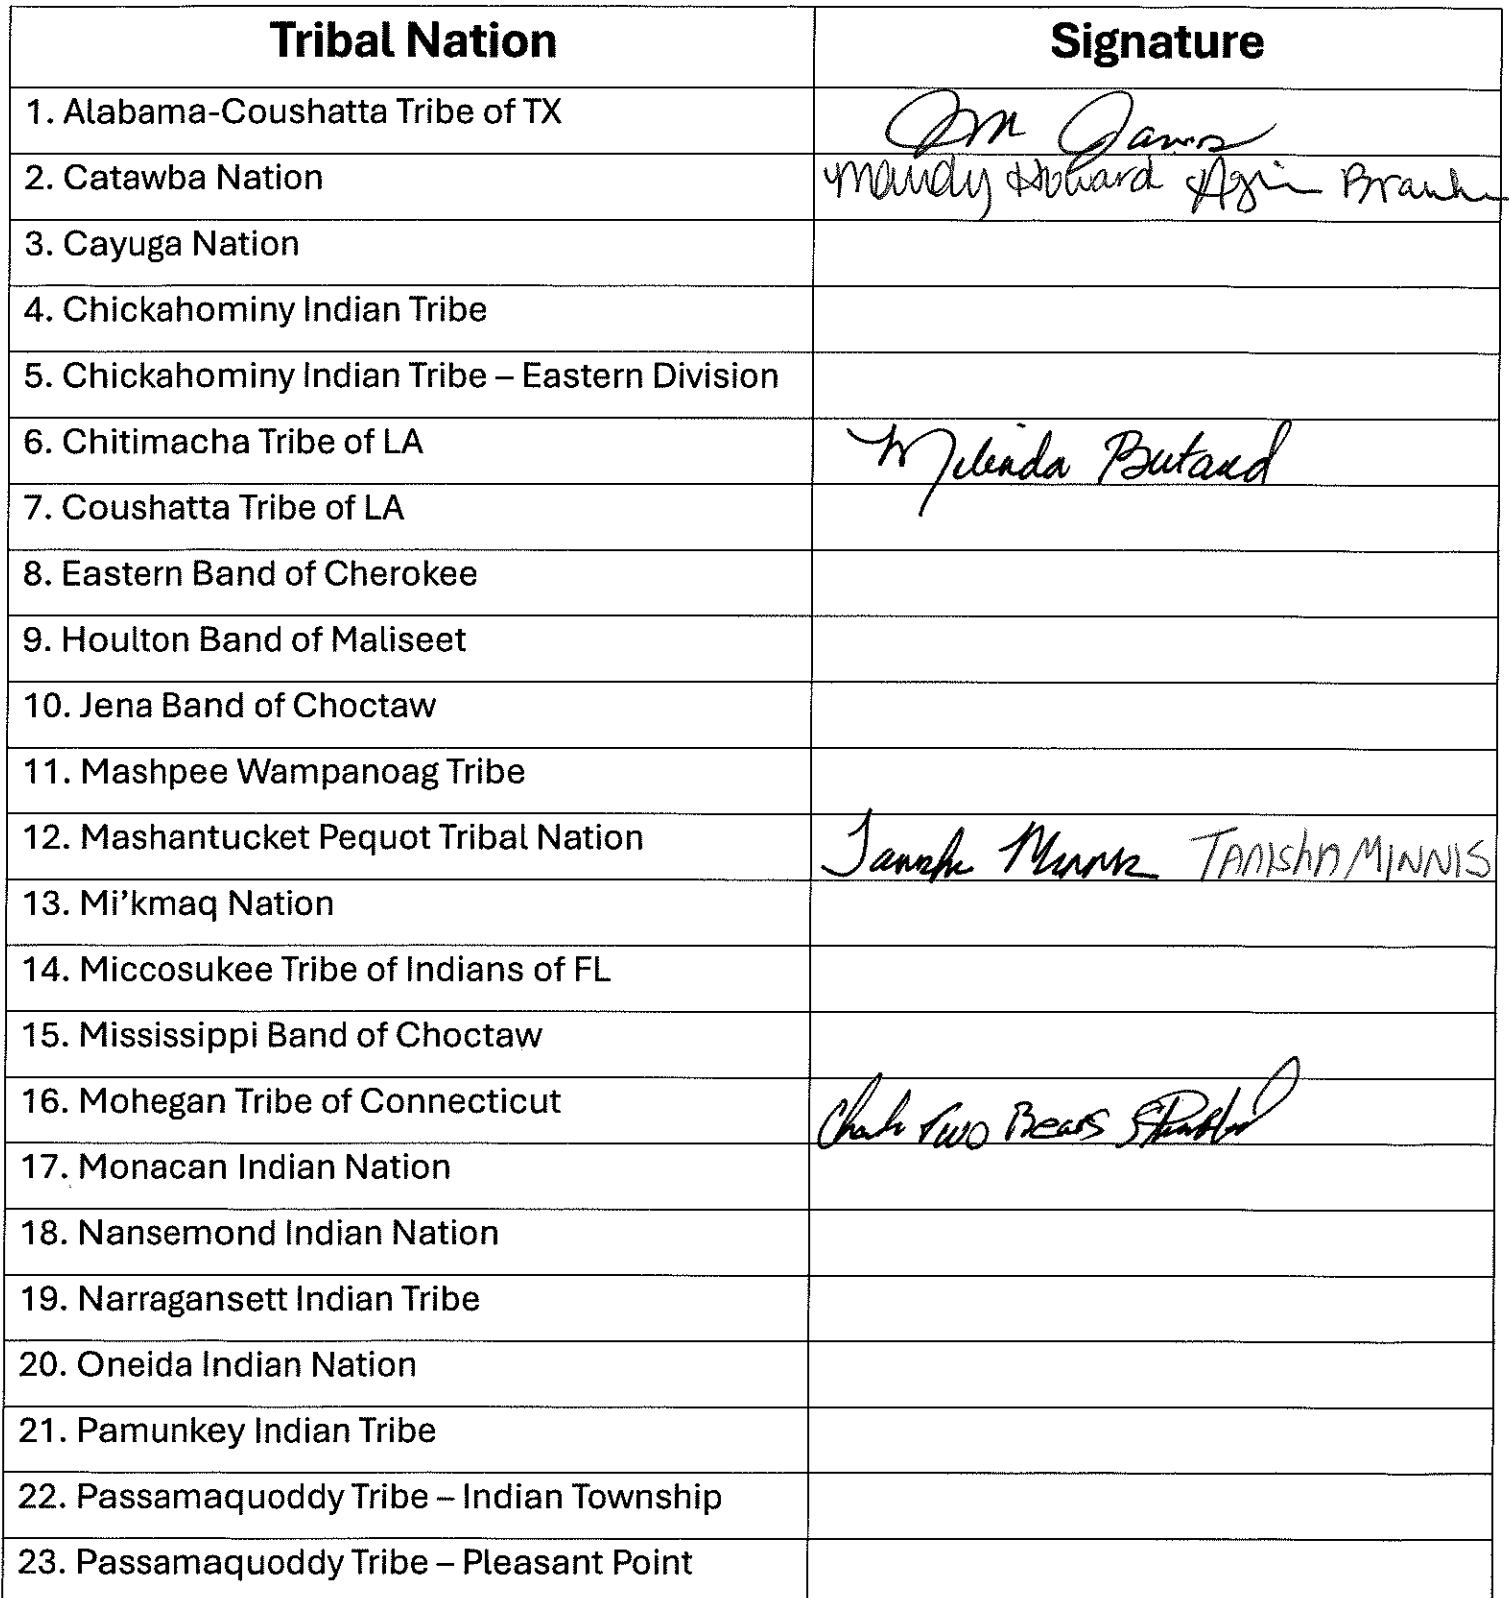 Tribal Nation Signature
1. Alabama-Coushatta Tribe of TX
2. Catawba Nation Mandy Howard
3. Cayuga Nation
4. Chickahominy Indian Tribe
5. Chickahominy Indian Tribe – Eastern Division
6. Chitimacha Tribe of LA Melinda
7. Coushatta Tribe of LA
8. Eastern Band of Cherokee
9. Houlton Band of Maliseet
10. Jena Band of Choctaw
11. Mashpee Wampanoag Tribe
12. Mashantucket Pequot Tribal Nation Tanisha Minnis TANISHA MINNIS
13. Mi’kmaq Nation
14. Miccosukee Tribe of Indians of FL
15. Mississippi Band of Choctaw
16. Mohegan Tribe of Connecticut Two Bears
17. Monacan Indian Nation
18. Nansemond Indian Nation
19. Narragansett Indian Tribe
20. Oneida Indian Nation
21. Pamunkey Indian Tribe
22. Passamaquoddy Tribe – Indian Township
23. Passamaquoddy Tribe – Pleasant Point